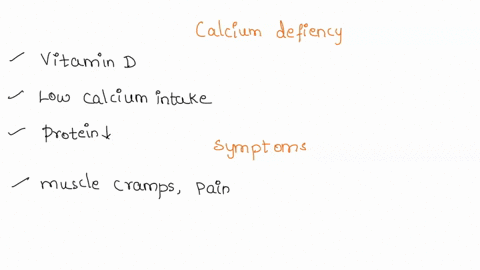 Calcium defiency
Vitamin D
Low calcium intake
Protein↓
Symptoms
muscle cramps, Pain